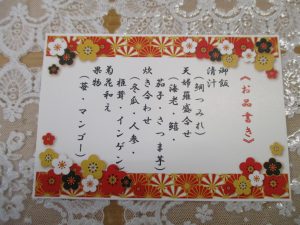 《お品書き》
御飯
清汁
（鯛つみれ）
天婦羅盛合せ
（海老・鱚・
茄子・さつま芋）
炊き合わせ
（冬瓜・人参・
椎茸・インゲン）
菊花和え
果物
（苺・マンゴー）